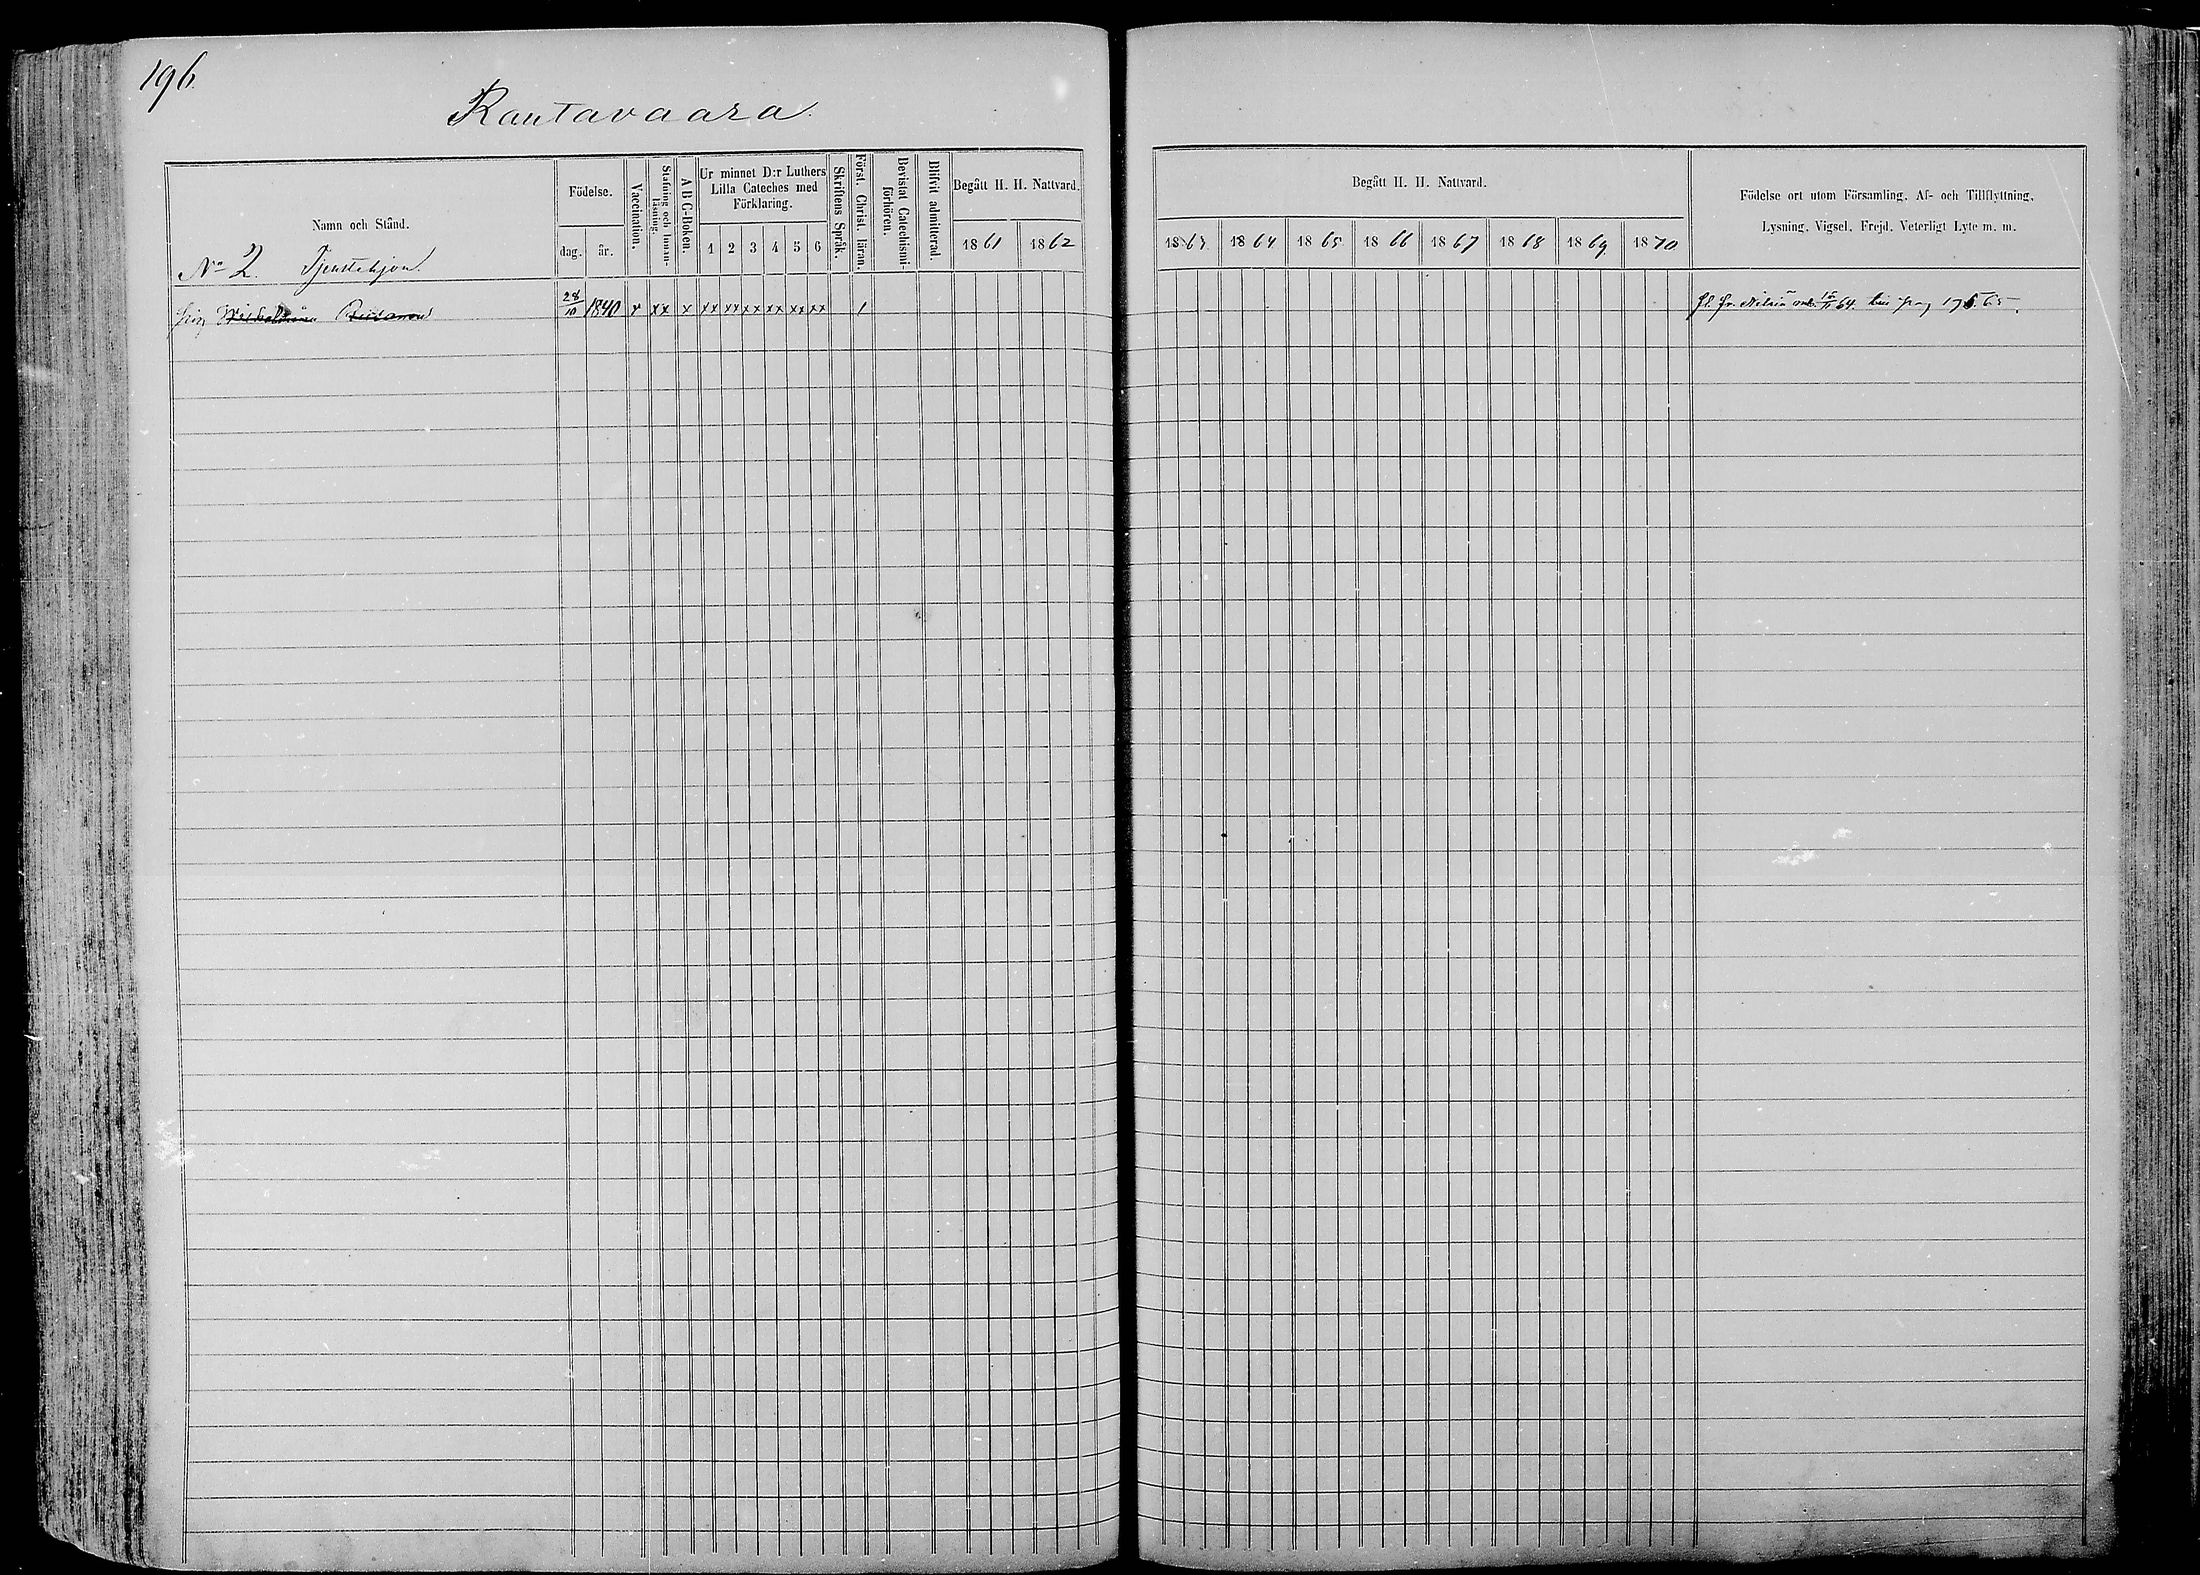 196.
Rautavaara.
Namn och Stånd.
Födelse.
dag. år.
Vaccination.
Stafning och Innanläsning.
A B C-Boken.
Ur minnet D:r Luthers
Lilla Cateches med
Förklaring.
1 2 3 4 5 6
Skriftens Språk.
Först. Christ. läran.
Bevistat Catechismi-
förhören.
Blifvit admitterad.
Begått H. H. Nattvard.
1861 1862
Begått H. H. Nattvard.
1863 1864 1865 1866 1867 1868 1869 1870
Födelse ort utom Församling, Af- och Tillflyttning,
Lysning, Vigsel, Frejd, Veterligt Lyte m. m.
No 2. Tjenstehjon.
28/10 1840 x xx x xx xx xx xx xx xx 1 fr. Nilsiä 64. pag 176. 65